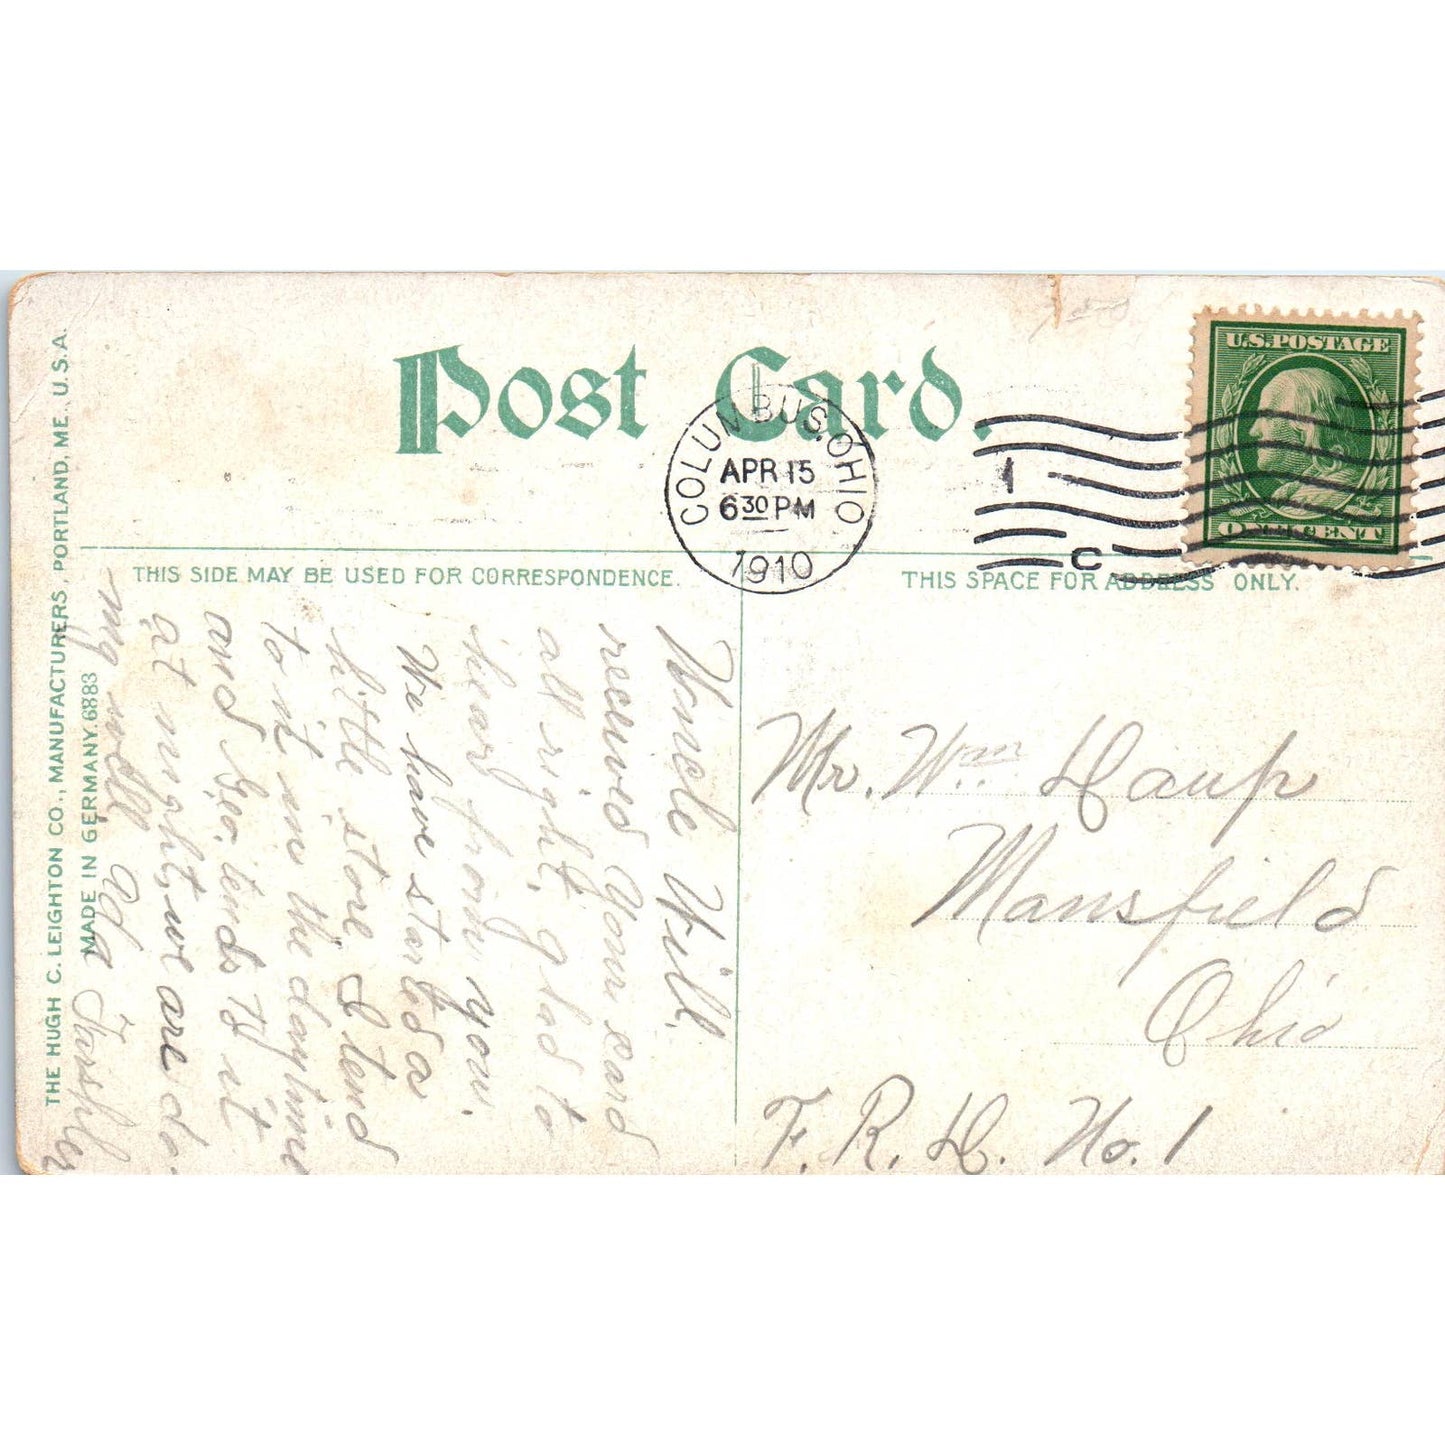 Post Card.
COLUMBUS, OHIO
APR 15
6 30 PM
1910
1
C
U.S. POSTAGE
ONE CENT
THIS SIDE MAY BE USED FOR CORRESPONDENCE.
THIS SPACE FOR ADDRESS ONLY.
THE HUGH C. LEIGHTON CO., MANUFACTURERS PORTLAND, ME., U.S.A.
MADE IN GERMANY. 6883
Uncle Will.
received your card
all right, glad to
hear from you.
We have started a
little store I tend
to it in the daytime
and Geo. tends to it
at night, we are do
ing well Ada
Mr. Wm. Haup
Mansfield
Ohio
F. R. D. No. 1